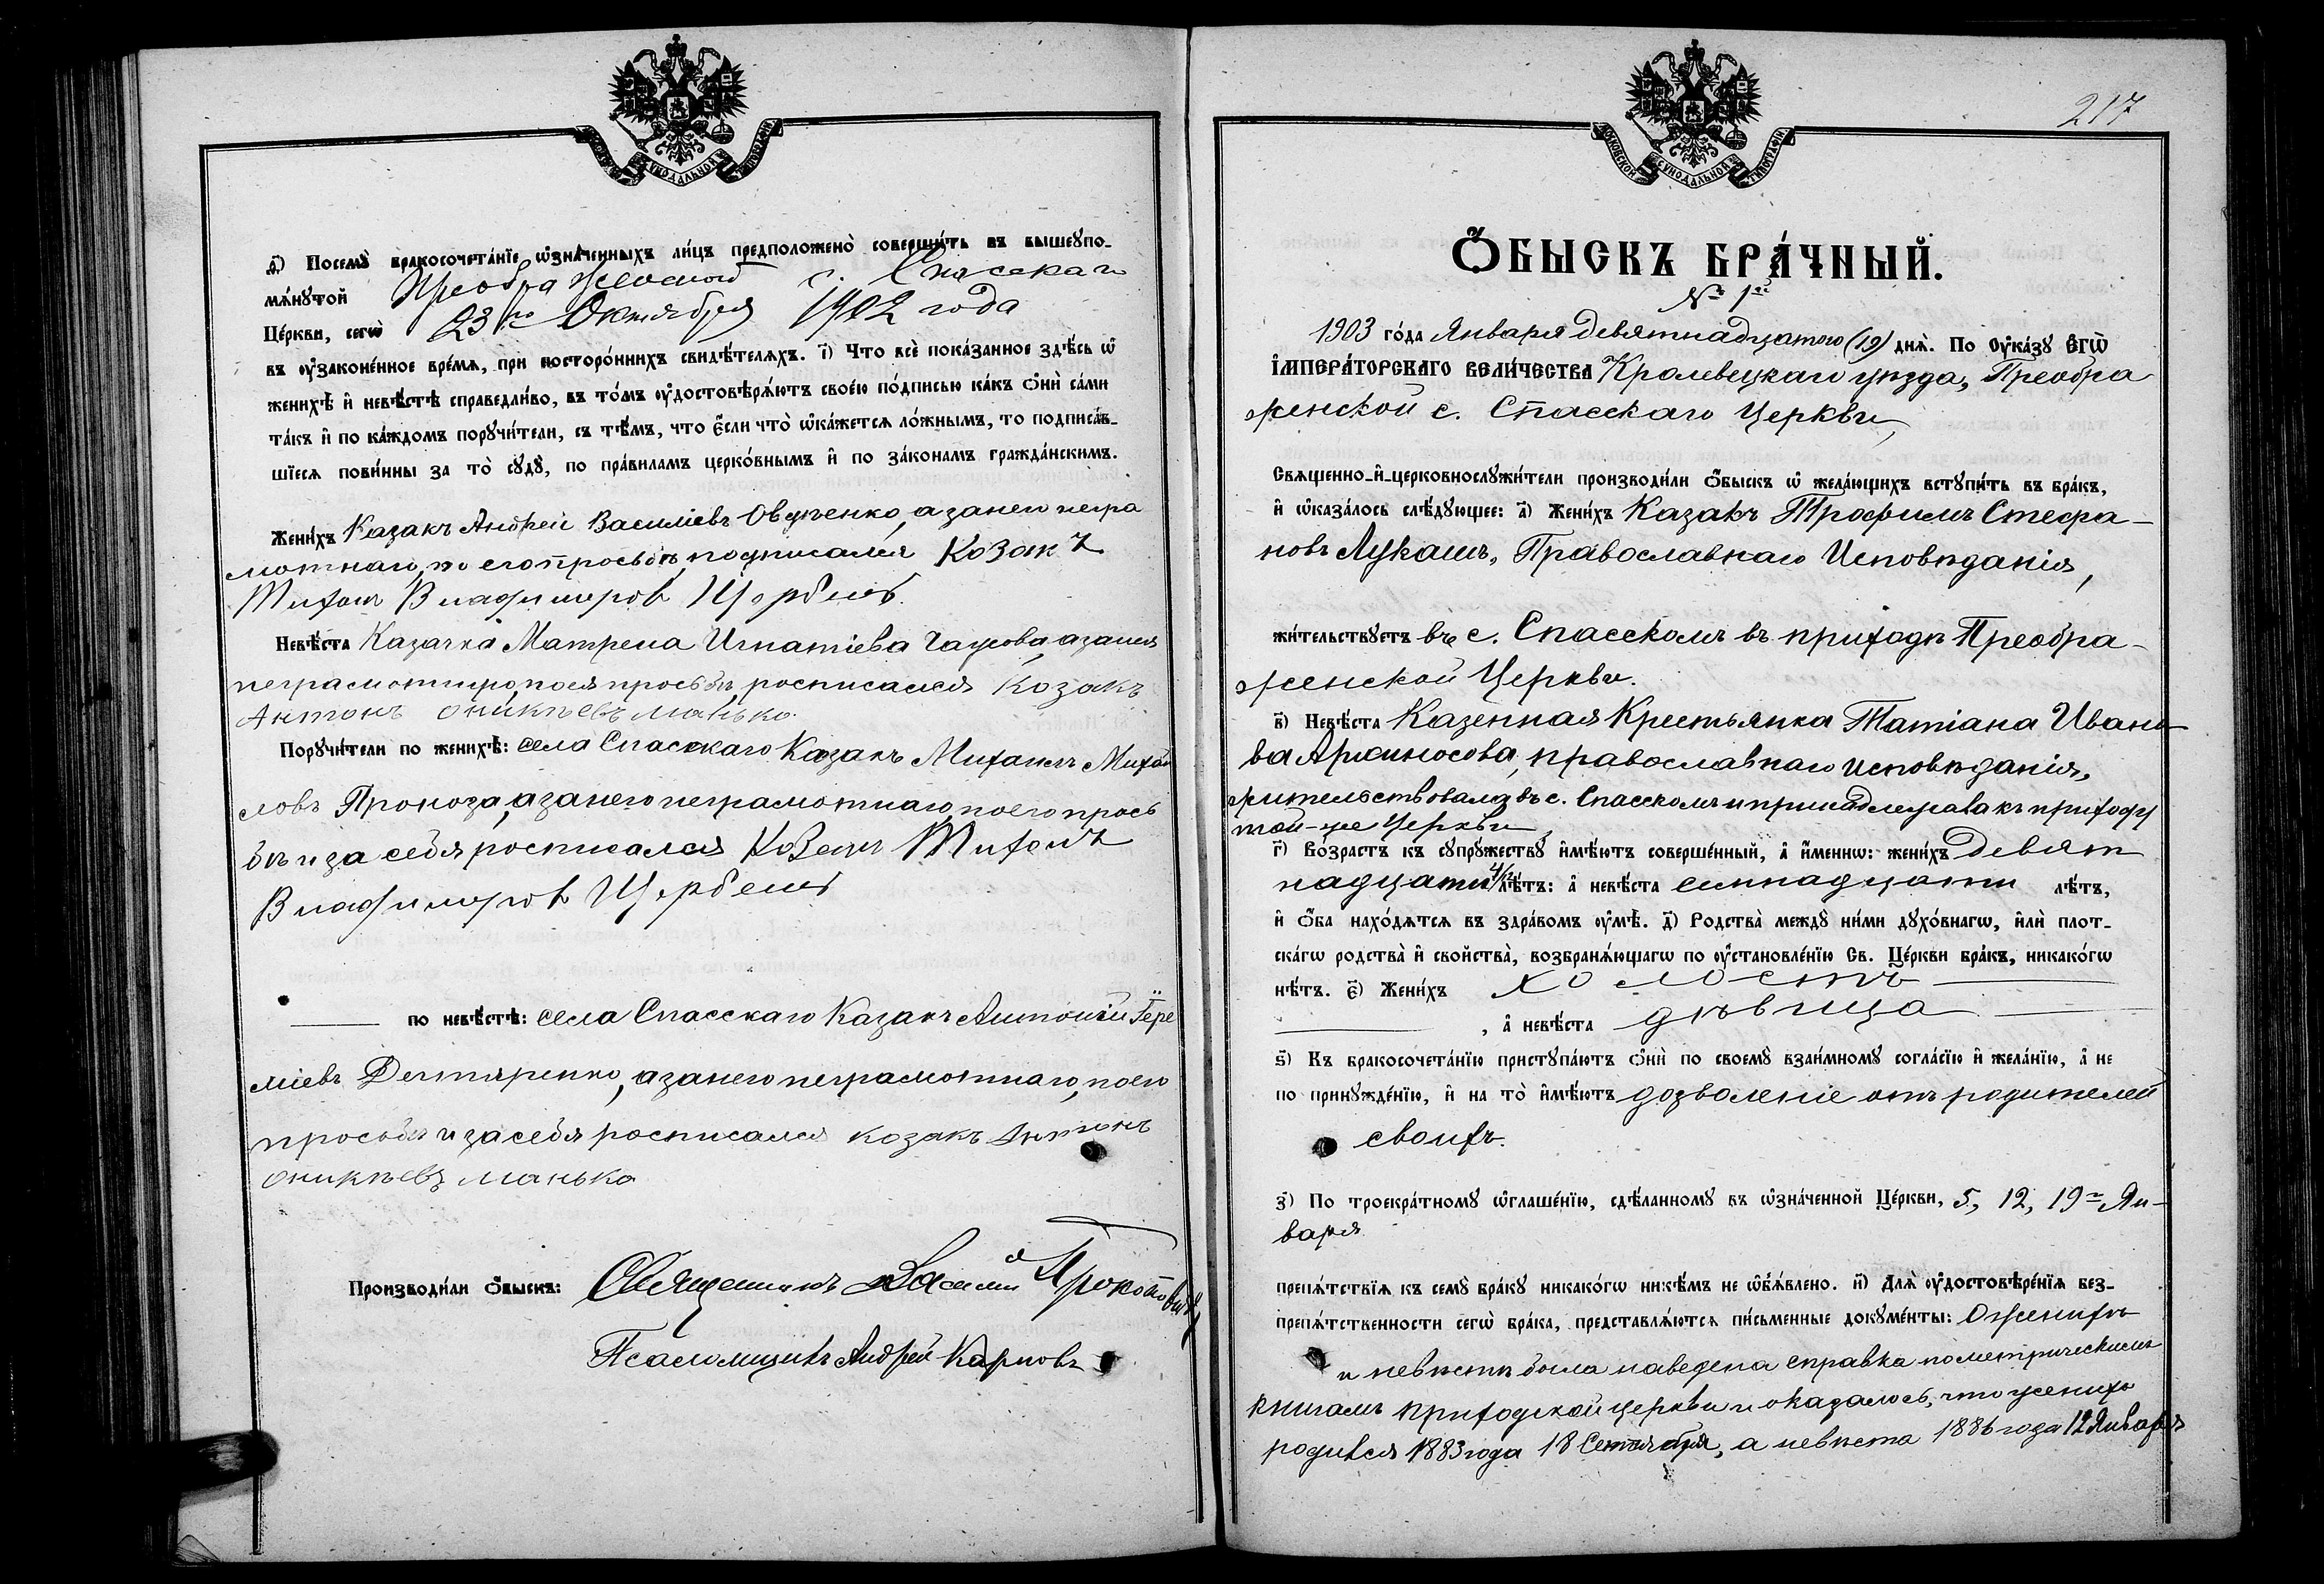 МОСКОВСКОЙ СѴНОДАЛЬНОЙ ТИПОГРАФІИ
д҃) Посемꙋ̀ бракосочета́нїе ѡ҆зна́ченныхъ ли́цъ предположено̀ соверши́ть въ вышеꙋпо-
мѧ́нꙋтой Преображенской с. Спасскаго
Це́ркви, сегѡ̀ 23го Октября 1902 года
въ ᲂу҆законе́нное вре́мѧ, при посторо́ннихъ свидѣ́телѧхъ. і҃) Что всѐ пока́занное здѣ́сь ѡ҆
женихѣ̀ и҆ невѣ́стѣ справедли́во, въ то́мъ ᲂу҆достовѣрѧ́ютъ свое́ю по́дписью ка́къ ѻ҆нѝ са́ми
та́къ и҆ по ка́ждомъ порꙋчи́тели, съ тѣ́мъ, что є҆́сли что̀ ѡ҆ка́жется ло́жнымъ, то подписа́в-
шїеся пови́нны за то̀ сꙋдꙋ̀, по пра́виламъ церко́внымъ и҆ по зако́намъ гражда́нскимъ.
Жени́хъ Казакъ Андрей Василіевъ Овдѣенко, а за него негра
мотнаго, по его просьбѣ, подписался Козакъ
Тихонъ Владимеров Щербенъ
Невѣ́ста Казачка Матрена Игнатіева Гаурова, а за нея
неграмотную, по ея просьбѣ, росписался Козакъ
Антонъ Оникѣевъ Манько.
Порꙋчи́тели по женихѣ̀: села Спасскаго Казакъ Михаилъ Михай
ловъ Проноза, а за него неграмотнаго, по его прось
бѣ и за себя росписался Козакъ Тихонъ
Владимеров Щербенъ
по невѣ́стѣ: села Спасскаго Казакъ Антоній Іере
міевъ Дегтяренко, а за него неграмотнаго, по его
просьбѣ и за себя росписался козакъ Антонъ
Оникѣевъ Манько
Производи́ли ѻ҆́быскъ: Священникъ Василій Прокоповичъ
Псаломщикъ Андрей Карповъ
217
МОСКОВСКОЙ СѴНОДАЛЬНОЙ ТИПОГРАФІИ
Ѻ҆́БЫСКЪ БРА́ЧНЫЙ.
№ 1й
1903 го́да Января девятнадцатого (19) днѧ̀. По Оу҆ка́зꙋ Є҆ГѠ̀
І҆МПЕРА́ТОРСКАГО ВЕЛИ́ЧЕСТВА Кролевецкаго уѣзда, Преобра
женской с. Спасскаго Церкви,
Свѧщенно-и҆-церковнослꙋжи́тели производи́ли ѻ҆́быскъ ѡ҆ жела́ющихъ встꙋпи́ть въ бра́къ,
и҆ ѡ҆каза́лось слѣ́дꙋющее: а҃) Жени́хъ Казакъ Трофимъ Стефа-
новъ Лукашъ, Православнаго Исповѣданія,
жи́тельствꙋетъ въ с. Спасскомъ въ приходѣ Преобра-
женской Церкви.
в҃) Невѣ́ста Казенная Крестьянка Татіана Ивано
ва Аржиносова, православнаго исповѣданія,
жительствовала въ с. Спасскомъ и принадлежала къ приходу
той-же Церкви
г҃) Во́зрастъ къ сꙋпрꙋ́жествꙋ и҆мѣ́ютъ соверше́нный, а҆ и҆́меннѡ: жени́хъ девят
надцати 4/12 лѣ́тъ: а҆ невѣ́ста симнадцати лѣ́тъ,
и҆ ѻ҆́ба нахо́дѧтсѧ въ здра́вомъ ᲂу҆мѣ̀. д҃) Родства̀ междꙋ̀ ни́ми дꙋхо́внагѡ, и҆лѝ плот-
ска́гѡ родства̀ и҆ свойства̀, возбранѧ́ющагѡ по ᲂу҆становле́нїю Св. Це́ркви бра́къ, никако́гѡ
нѣ́тъ. є҃) Жени́хъ холостъ
, а҆ невѣ́ста дѣвица
ѕ҃) Къ бракосочета́нїю пристꙋпа́ютъ ѻ҆нѝ по своемꙋ̀ взаи́мномꙋ согла́сїю и҆ жела́нїю, а҆ не
по принꙋжде́нїю, и҆ на то̀ и҆мѣ́ютъ дозволеніе отъ родителей
своихъ.
з҃) По троекра́тномꙋ ѡ҆глаше́нїю, сдѣ́ланномꙋ въ ѡ҆зна́ченной Це́ркви, 5, 12, 19го Ян-
варя
препѧ́тствїѧ къ семꙋ̀ бра́кꙋ никако́гѡ никѣ́мъ не ѡ҆бѧ́влено. и҃) Длѧ̀ ᲂу҆достовѣре́нїѧ без-
препѧ́тственности сегѡ̀ бра́ка, представлѧ́ютсѧ пи́сьменные докꙋме́нты: О женихѣ
и невѣстѣ была наведена справка по метрическимъ
книгамъ приходской церкви и оказалось, что женихъ
родился 1883 года 18 Сентября, а невѣста 1886 года 12 Января